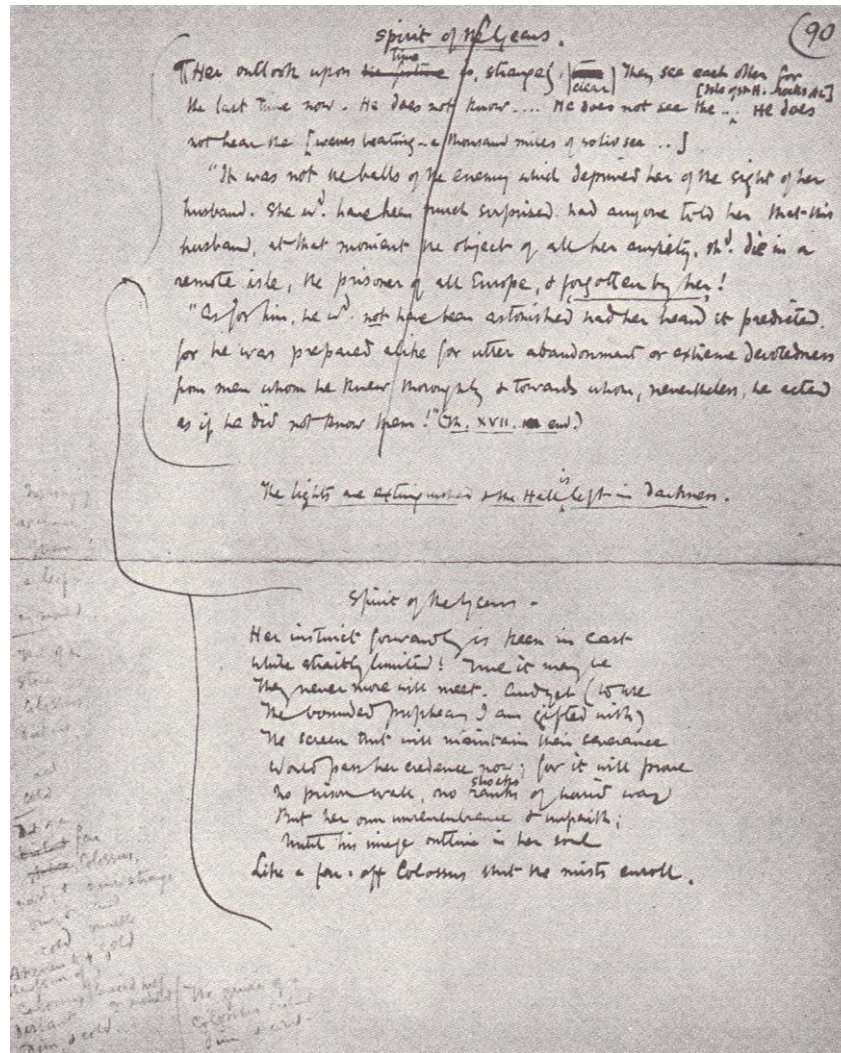 (90
Spirit of the Years.
¶ Her outlook upon time is strange {clear} They see each other for
[Isle of St H. rocks &c]
the last time now. He does not know.... He does not see the .. He does
not hear the [waves beating – a thousand miles of solid sea ..]
"It was not the balls of the enemy which deprived her of the sight of her
husband. She wd. have been much surprised had anyone told her that this
husband, at that moment the object of all her anxiety, shd. die in a
remote isle, the prisoner of all Europe, & forgotten by her!
"As for him, he wd. not have been astonished had her heard it predicted.
for he was prepared alike for utter abandonment or extreme devotedness
from men whom he knew thoroughly & towards whom, nevertheless, he acted
as if he did not know them!" (Th. XVII. end.)
The lights are extinguished & the Hall is left in darkness.
Spirit of the Years –
Her instinct forwardly is keen in cast
While straitly limited! True it may be
They never more will meet. And yet (to use
The bounded prophecy I am gifted with)
The screen that will maintain their severance
Would pass her credence now; for it will prove
No prison wall, no shocks of harid way
But her own unremembrance & unfaith;
Until his image outline in her soul
Like a far-off Colossus shut the mists enroll.
stone
Colossus
cold
far
Colossus,
cold
cold
distant
& cold
Colossus